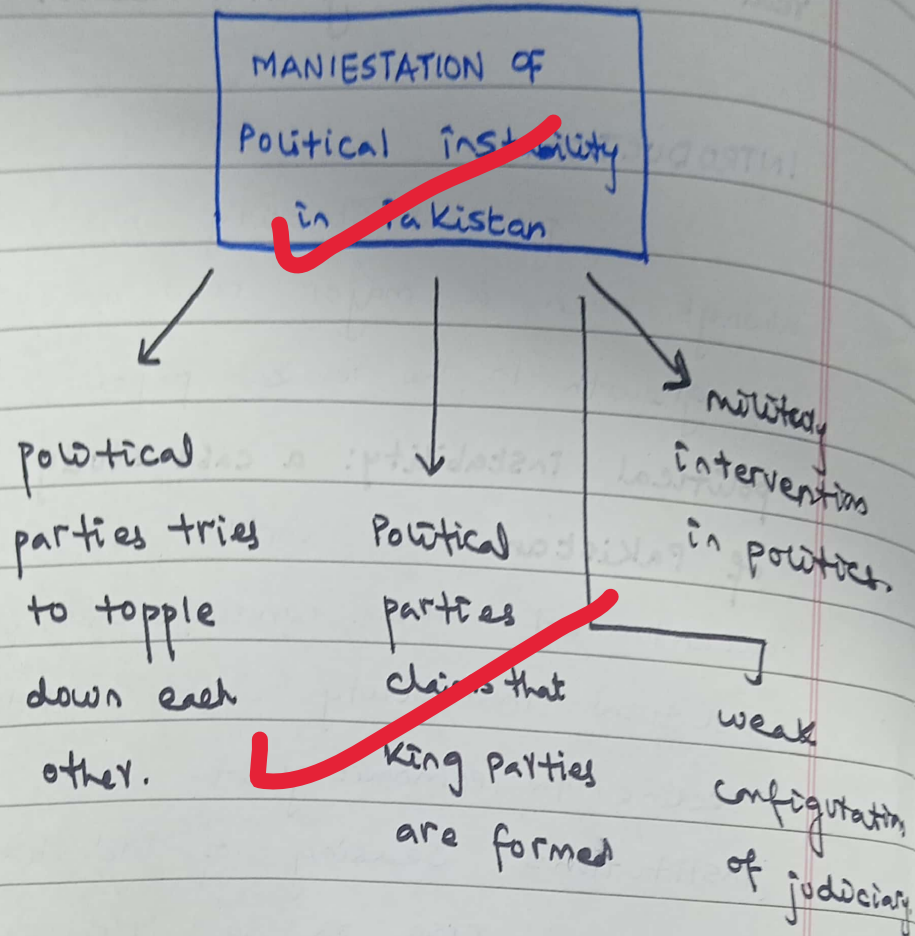 MANIESTATION OF
Political instability
in Pakistan
political
parties tries
to topple
down each
other.
Political
parties
claims that
King parties
are formed
military
intervention
in politics.
weak
configutation
of judiciary